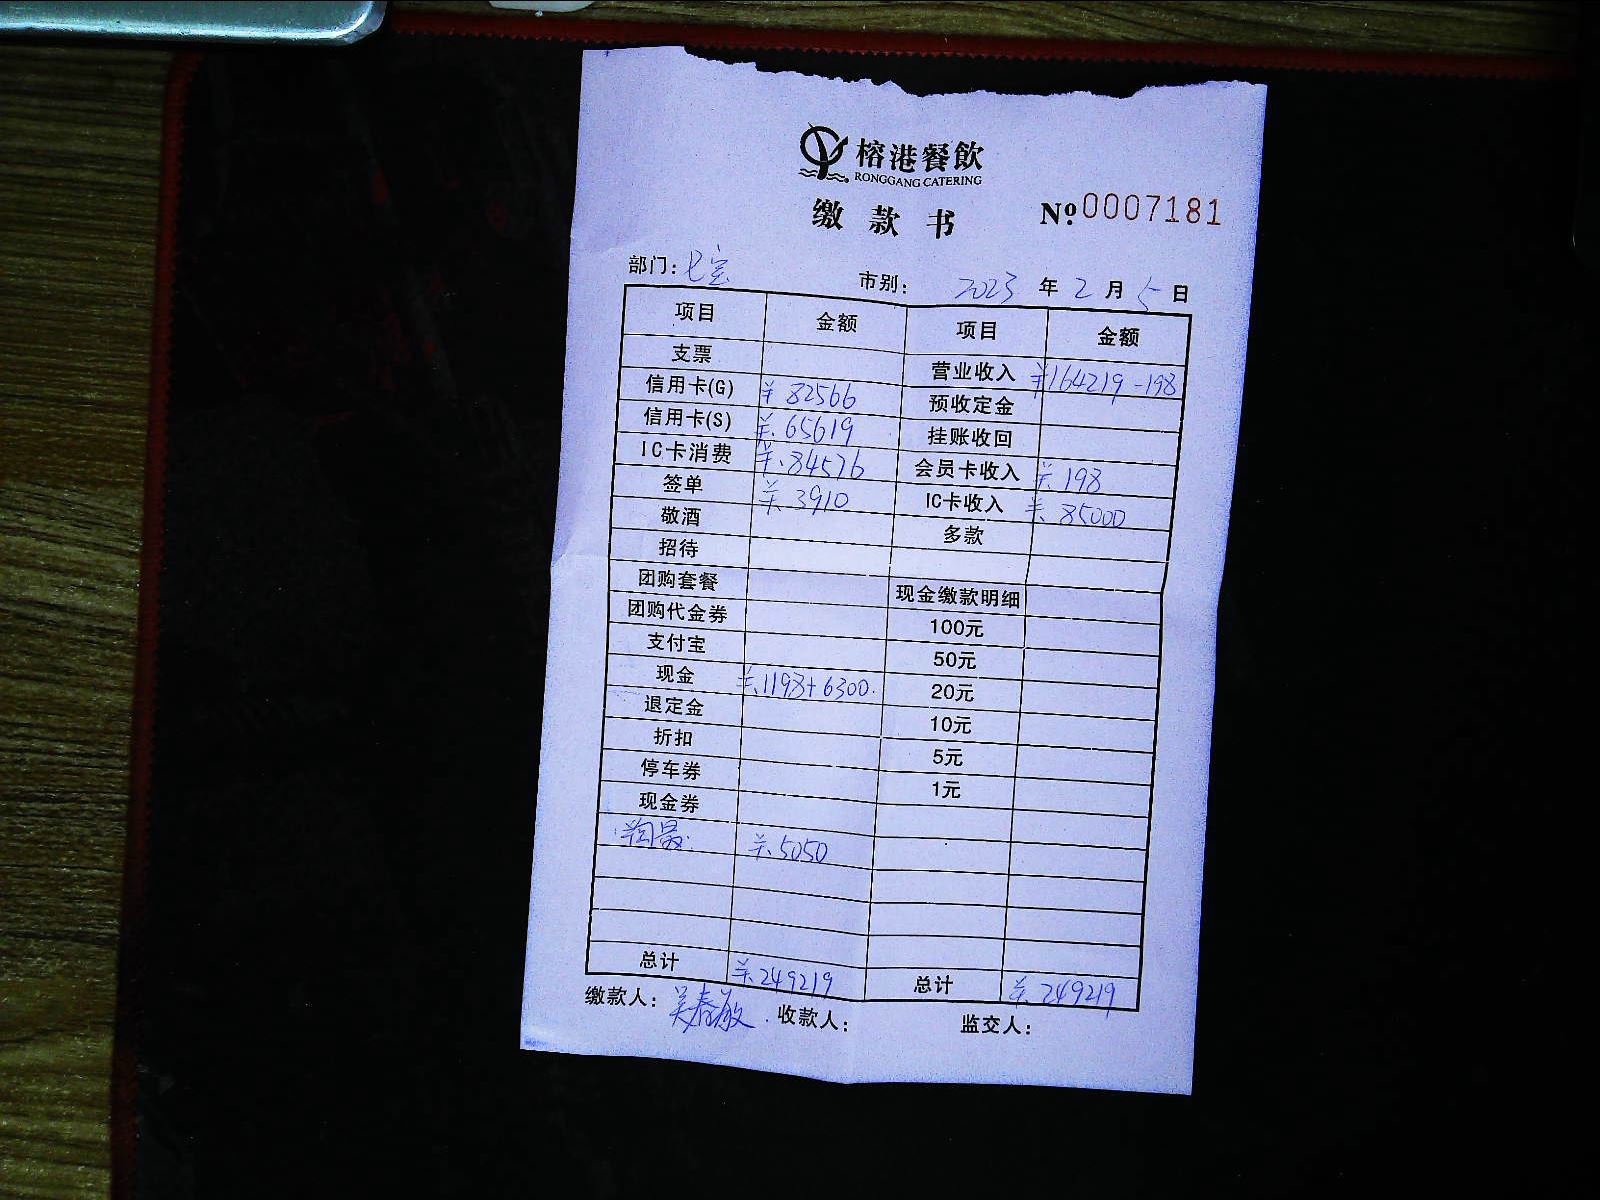 榕港餐飲
RONGGANG CATERING
缴款书 №0007181
部门：七宝 市别： 2023 年 2 月 5 日
项目 金额 项目 金额
支票 营业收入 ¥164219-198
信用卡(G) ¥82566 预收定金
信用卡(S) ¥65619 挂账收回
IC卡消费 ¥84576 会员卡收入 ¥198
签单 ¥3910 IC卡收入 ¥85000
敬酒 多款
招待
团购套餐 现金缴款明细
团购代金券 100元
支付宝 50元
现金 ¥1198+6300 20元
退定金 10元
折扣 5元
停车券 1元
现金券
¥5050
总计 ¥249219 总计 ¥249219
缴款人：吴春敏 收款人： 监交人：